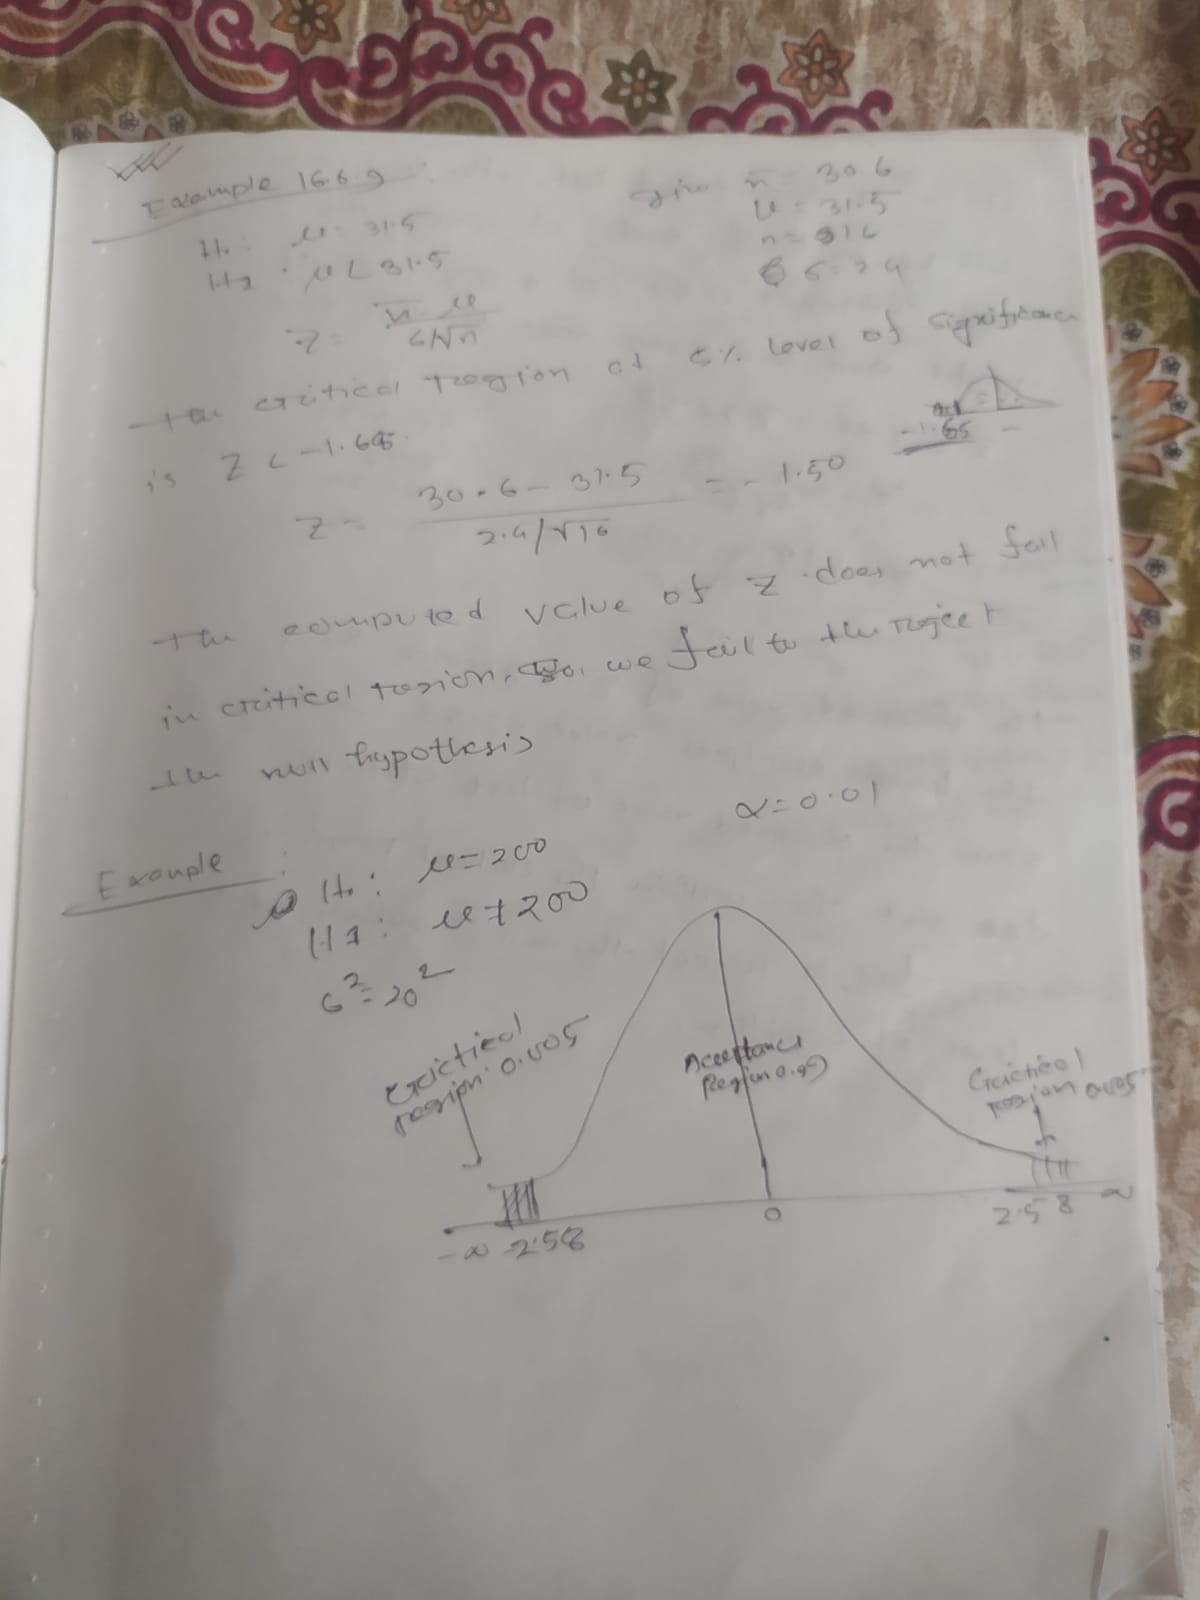 Example 16.6.9 :
given x̄ = 30.6
H₀ : μ = 31.5
μ = 31.5
H1 : μ < 31.5
n = 16
σ = 2.4
Z = x̄ - μ / σ/√n
The critical region at 5% level of significance
is Z < -1.65.
-1.65
Z = 30.6 - 31.5 / 2.4/√16 = -1.50
The computed value of Z does not fall
in critical region, So, we fail to the reject
the null hypothesis
α = 0.01
Example :
H₀ : μ = 200
H1 : μ ≠ 200
σ² = 20²
Critical region 0.005
Acceptance Region 0.99
Critical region 0.005
-∞ -2.58 0 2.58 ∞